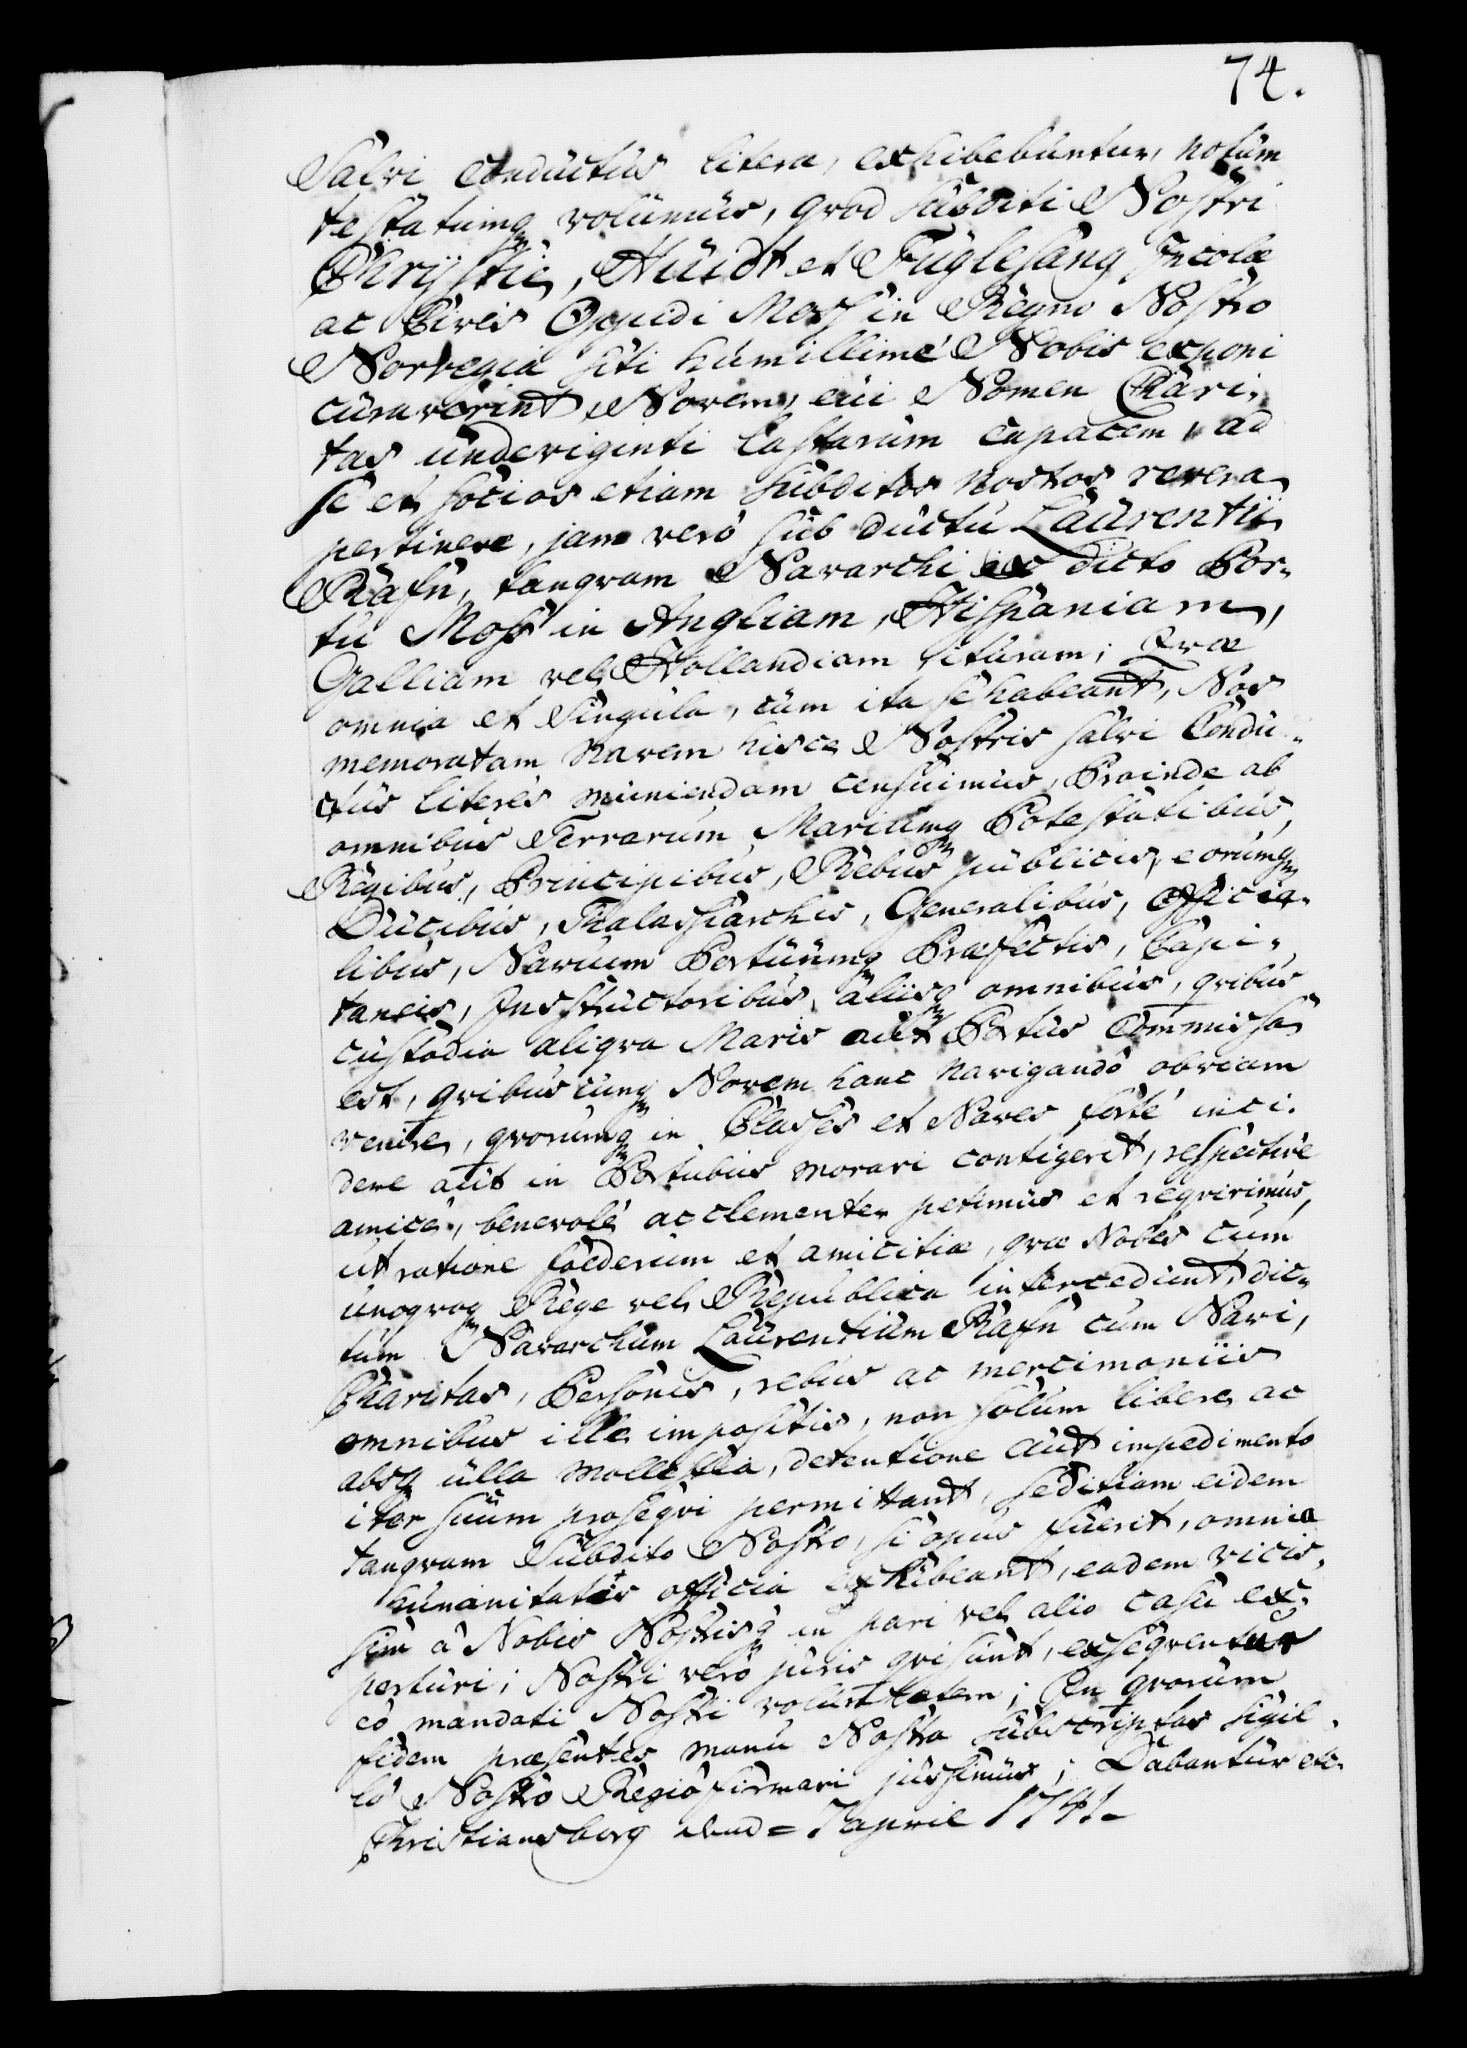 74.
Salvi Conductus literæ, exhibebuntur, notum
testatumq volumus, qvod Subditi Nostri
Chrystie, Huidt et Fuglesang Incolæ
ac Cives Oppidi Moss in Regno Nostro
Norvegiæ siti humillimé Nobis exponi
curaverint Navem, cui Nomen Chari-
tas undeviginti lastarum capacem, ad
se et socios etiam subditos nostros revera
pertinere, jam veró sub ductu Laurentii
Rafn, tanqvam Navarchi ex dicto Por-
tu Moss in Angliam, Hispaniam,
Galliam vel Hollandiam ituram; Qvæ
omnia et singula, cum ita se habeant, Nos
memoratam navem hisce Nostris salvi Condu-
ctus literis muniendam censuimus, Proinde ab
omnibus Terrarum Mariumq Potestatibus,
Regibus, Principibus, Rebus publicis, eorumq
Ducibus, Thalassiarchis, Generalibus, Officia-
libus, Navium Portuumq Præfectis, Capi-
taneis, Insstructoribus, aliisq omnibus, qvibus
custodia aliqva Maris aut Portus Commissa
est, qvibuscunq Navem hanc navigando obviam
venire, qvorumq in Classes et Naves forté inci-
dere aut in Portubus morari contigerit, respective
amicé, benevolé ac clementer petimus et reqvirimus,
ut ratione foederum et amicitiæ, qvæ Nobis cum
unoqvoq Rege vel Republica intercedunt, dic-
tum Navarchum Laurentium Rafn cum Navi,
Charitas, Personis, rebus ac mercimoniis
omnibus illi impositis, non solum libere ac
absq ulla mollestia, detentione aut impedimento
iter suum proseqvi permittant, sed etiam eidem
tanqvam Subdito Nostro, si opus fuerit, omnia
humanitatis officia exhibeant, eadem vicis-
sim à Nobis Nostrisq in pari vel alio casu ex-
perturi; Nostri veró juris qvi sunt, exseqventur
eó mandati Nostri voluntatem; In qvorum
fidem præsentes manu Nostra subscriptas sigil-
ló Nostró Regió firmari jussimus; Dabantur etc.
Christiansborg den 7 april 1741.